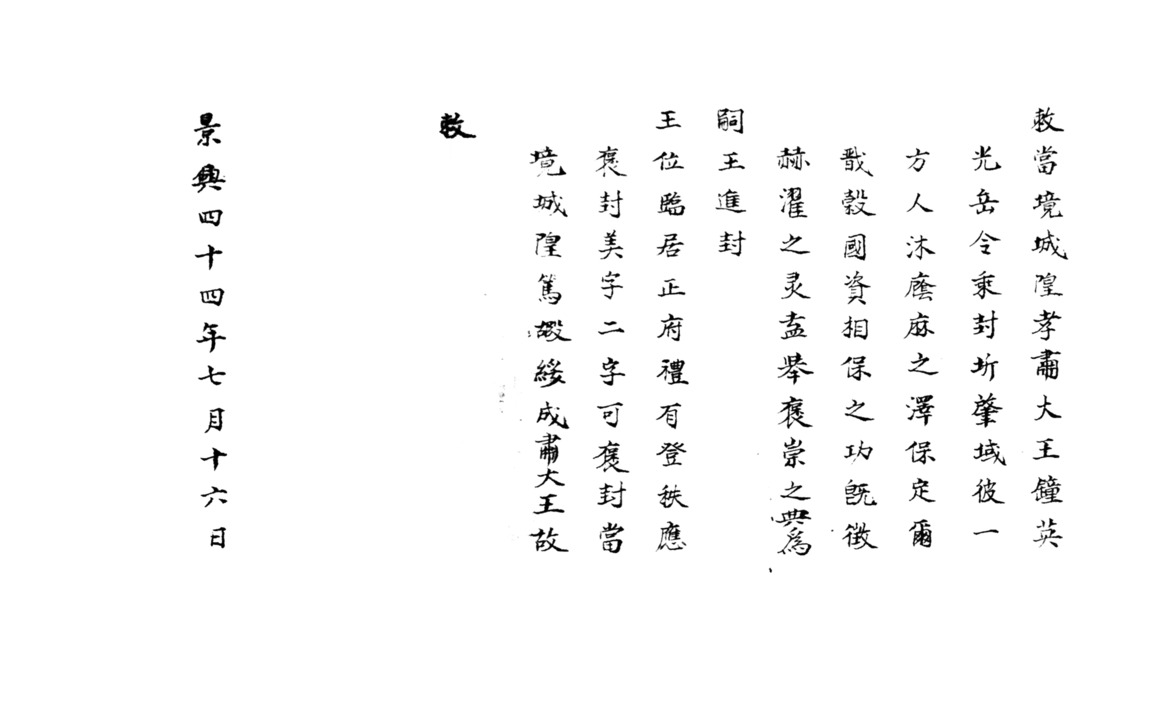 敕當境城隍孝肅大王鐘英
光岳令乘封圻肇域彼一
方人沐廕庥之澤保定爾
戩穀國資相保之功既徵
赫濯之灵盍舉褒崇之典爲
嗣王進封
王位臨居正府禮有登秩應
褒封美字二字可褒封當
境城隍篤嘏綏成肅大王故
敕
景興四十四年七月十六日